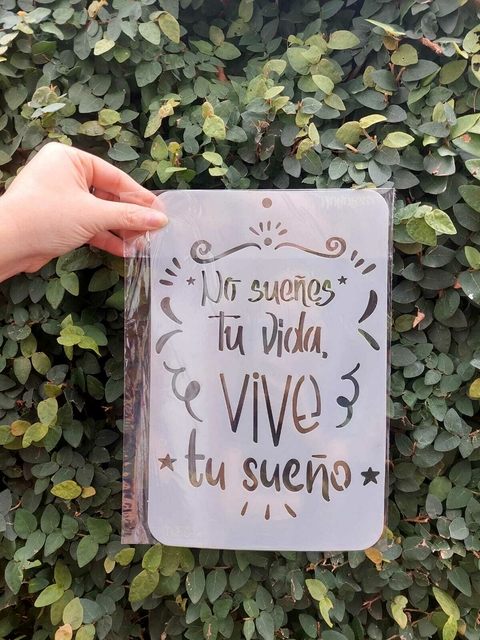 No sueñes
tu vida,
ViVE
tu sueño